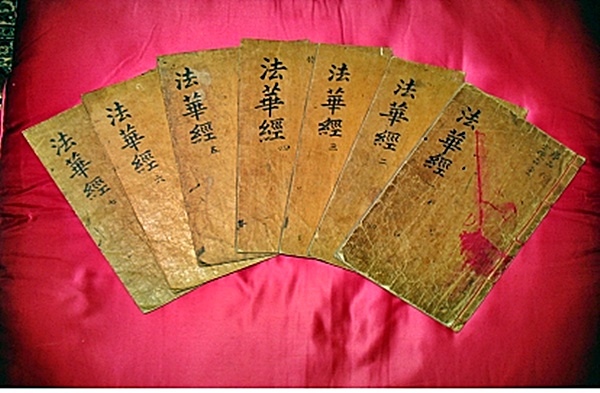 法華經 七
法華經 六
法華經 五
法華經 四
法華經 三
法華經 二
法華經